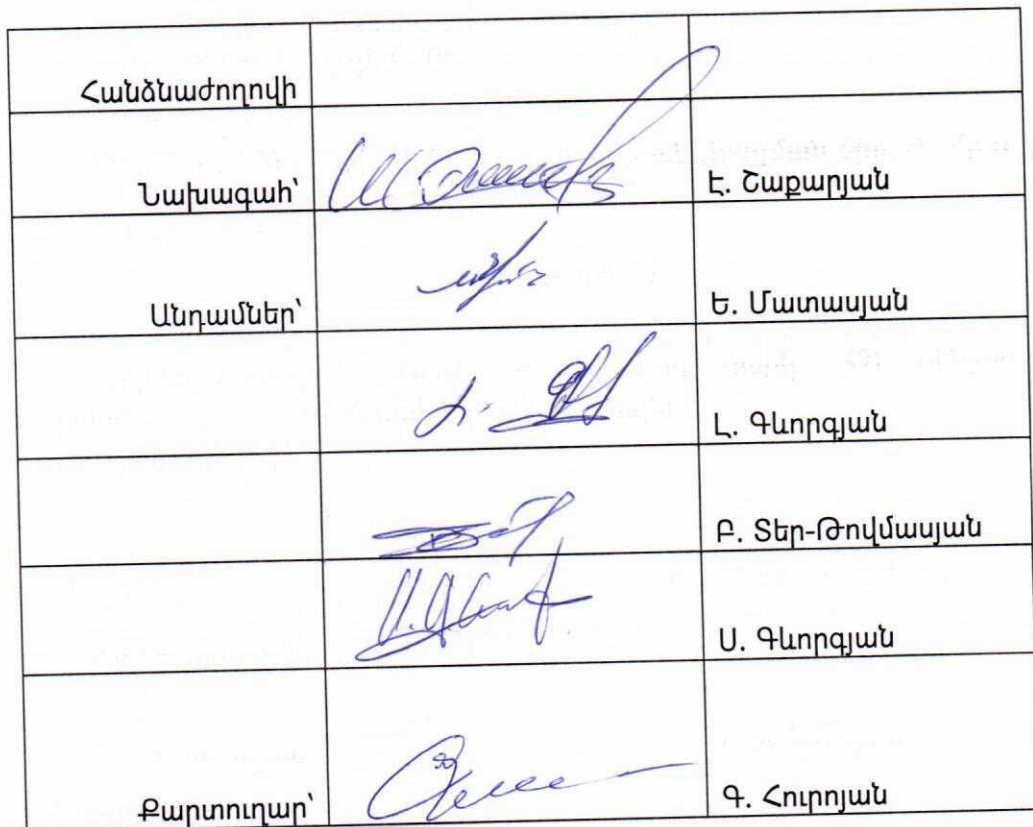 Հանձնաժողովի
Նախագահ՝ Է. Շաքարյան
Անդամներ՝ Ե. Մատասյան
Լ. Գևորգյան
Բ. Տեր-Թովմասյան
Ս. Գևորգյան
Քարտուղար՝ Գ. Հուրոյան